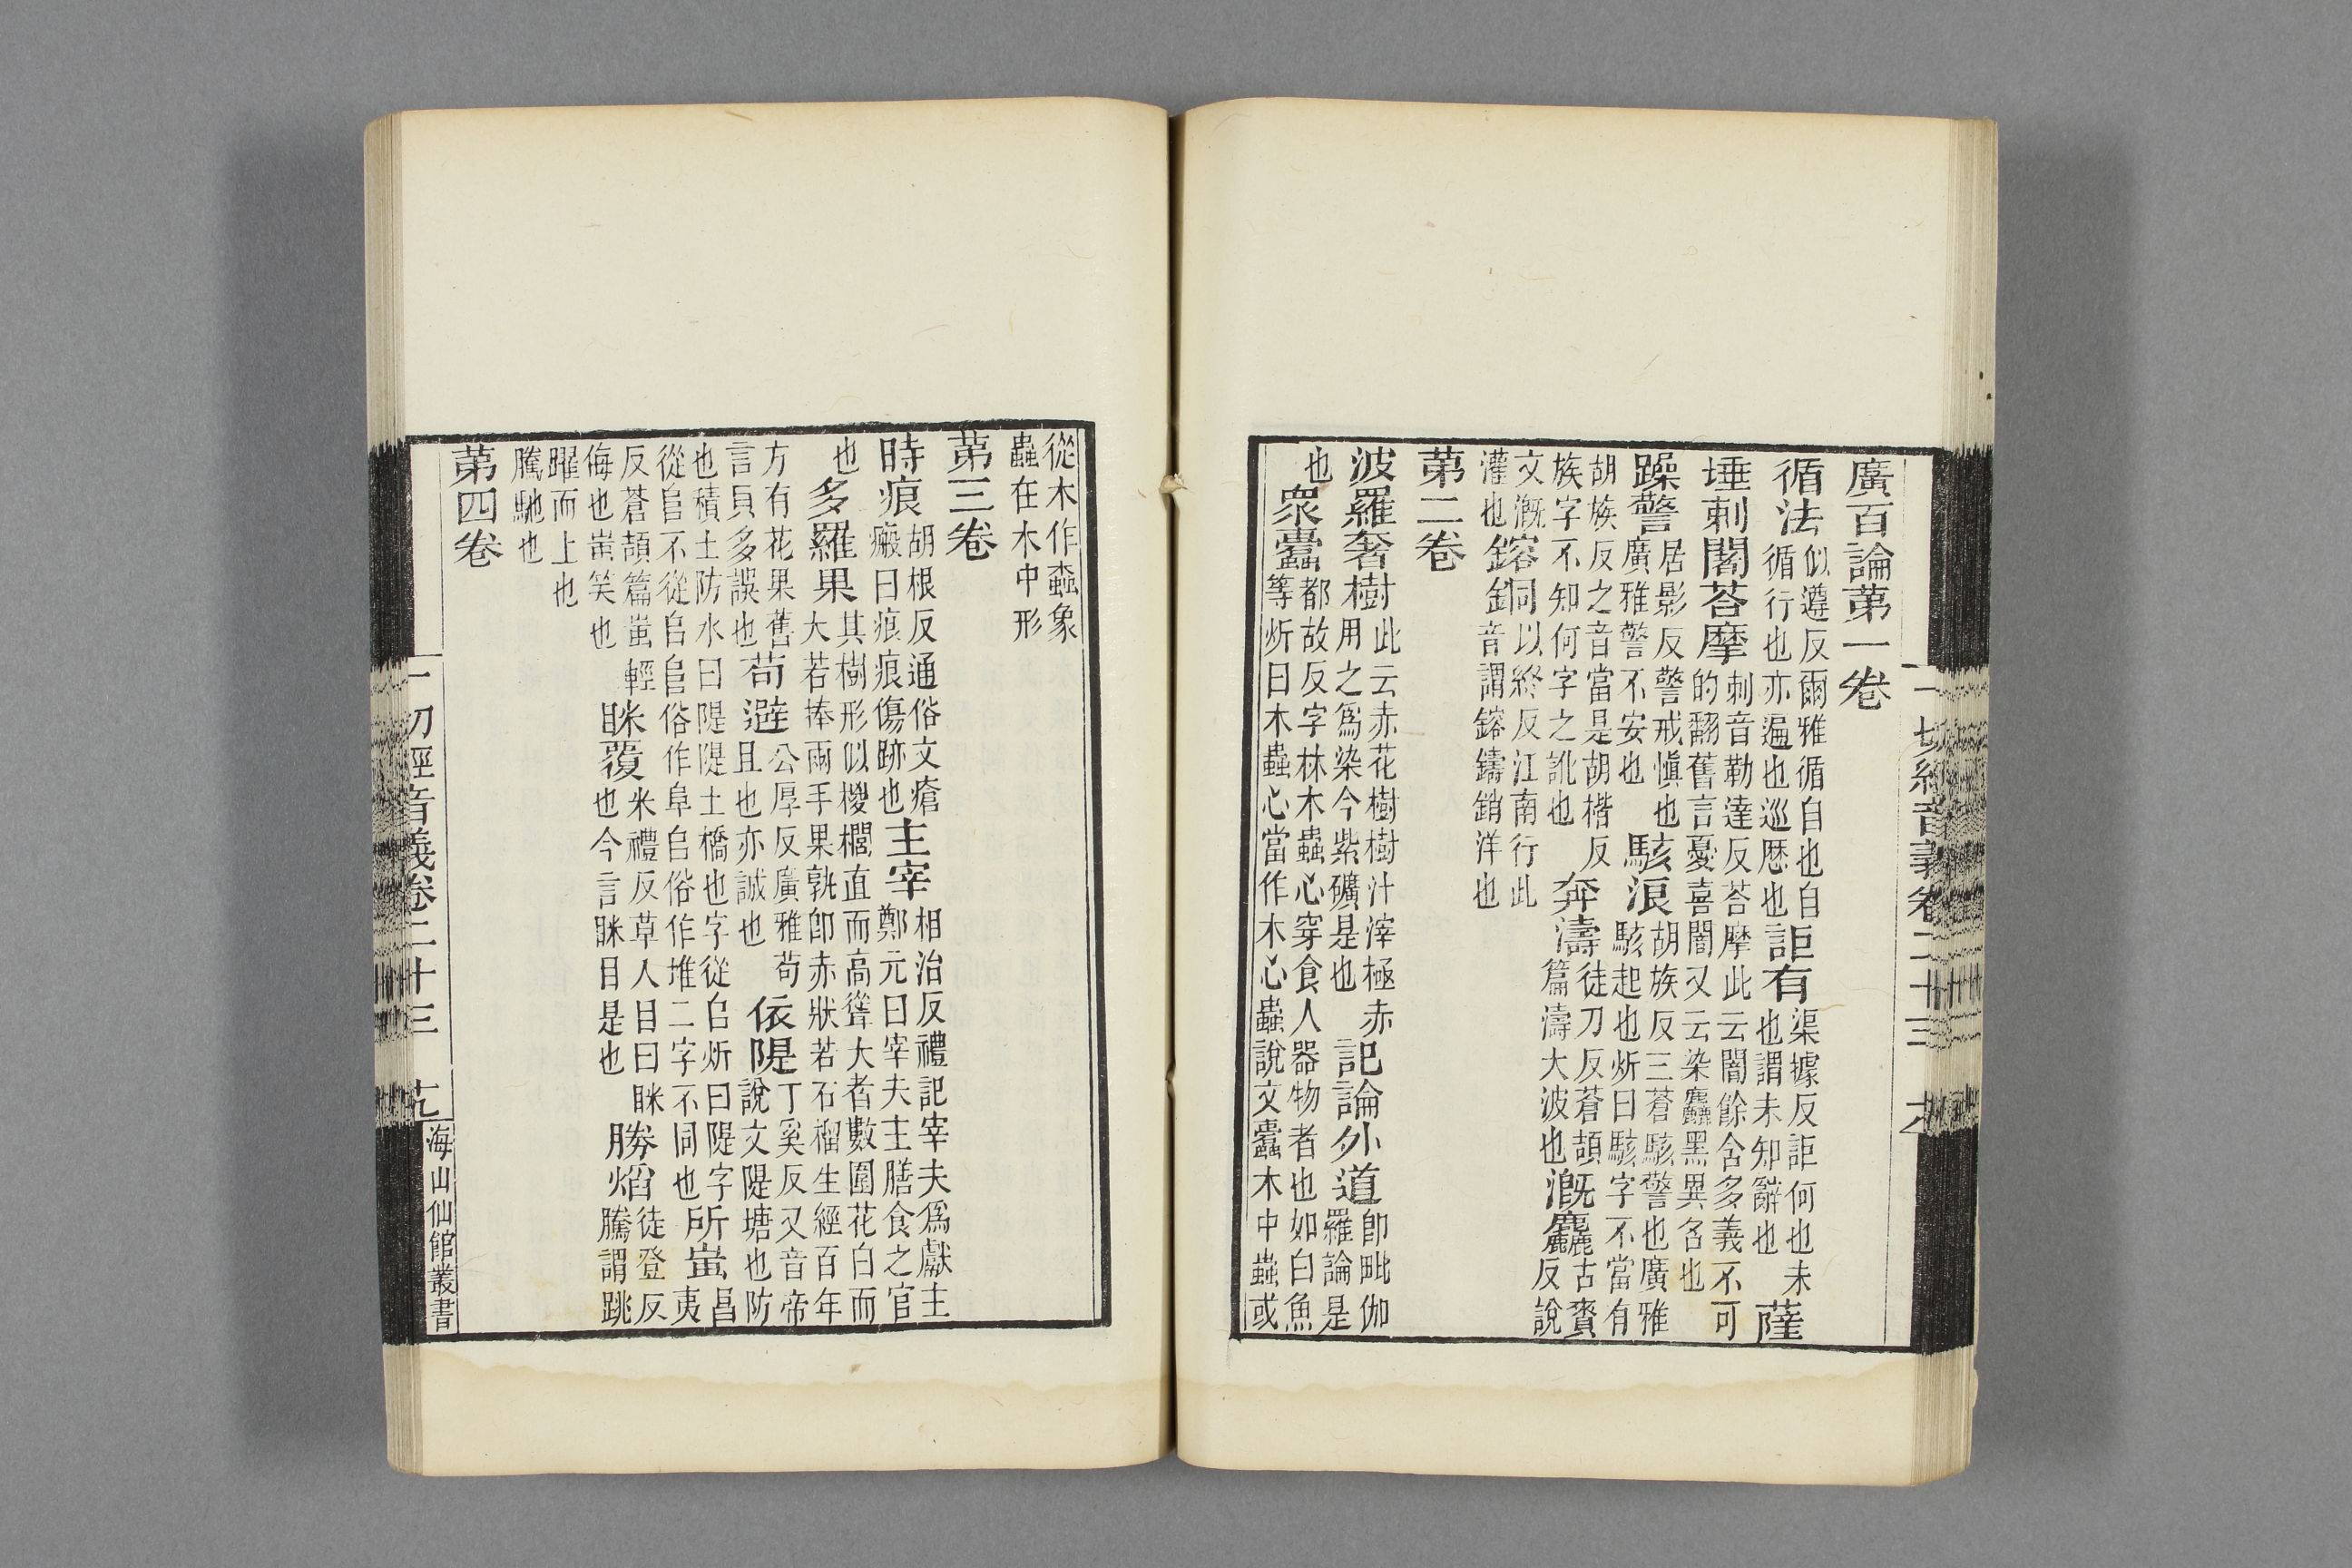 廣百論第一卷
循法似遵反爾雅循自也自循行也亦遍也巡歷也詎有渠據反詎何也未也謂未知辭也薩
埵剌闍荅摩剌音勒達反荅摩此云闇餘含多義不可的翻舊言憂喜闇又云染麤黑異名也
躁警居影反警戒愼也廣雅警不安也駭浪胡族反三蒼駭警也廣雅駭起也炘曰駭字不當有
胡族反之音當是胡楷反族字不知何字之訛也奔濤徒刀反蒼頡篇濤大波也漑麤古賚反說
文漑灌也鎔銅以終反江南行此音謂鎔鑄銷洋也
第二卷
波羅奢樹此云赤花樹樹汁滓極赤用之爲染今紫礦是也記論外道卽毗伽羅論是
也衆蠹都故反字林木蟲心穿食人器物者也如白魚等炘曰木蟲心當作木心蟲說文蠹木中蟲或
一切經音義卷二十三
從木作螙象蟲在木中形
第三卷
時痕胡根反通俗文瘡瘢曰痕痕傷跡也主宰相治反禮記宰夫爲獻主鄭元曰宰夫主膳食之官
也多羅果其樹形似椶櫚直而高聳大者數圍花白而大若捧兩手果孰卽赤狀若石榴生經百年
方有花果舊言貝多誤也苟避公厚反廣雅苟且也亦誠也依隄丁奚反又音帝說文隄塘也防
也積土防水曰隄隄土橋也字從𨸏炘曰隄字從𨸏不從𠂤𨸏俗作阜𠂤俗作堆二字不同也所蚩昌夷
反蒼頡篇蚩輕侮也蚩笑也眯覆米禮反草人目曰眯也今言眯目是也騰焰徒登反騰謂跳
躍而上也騰馳也
第四卷
一切經音義卷二十三
十九
海山仙館叢書